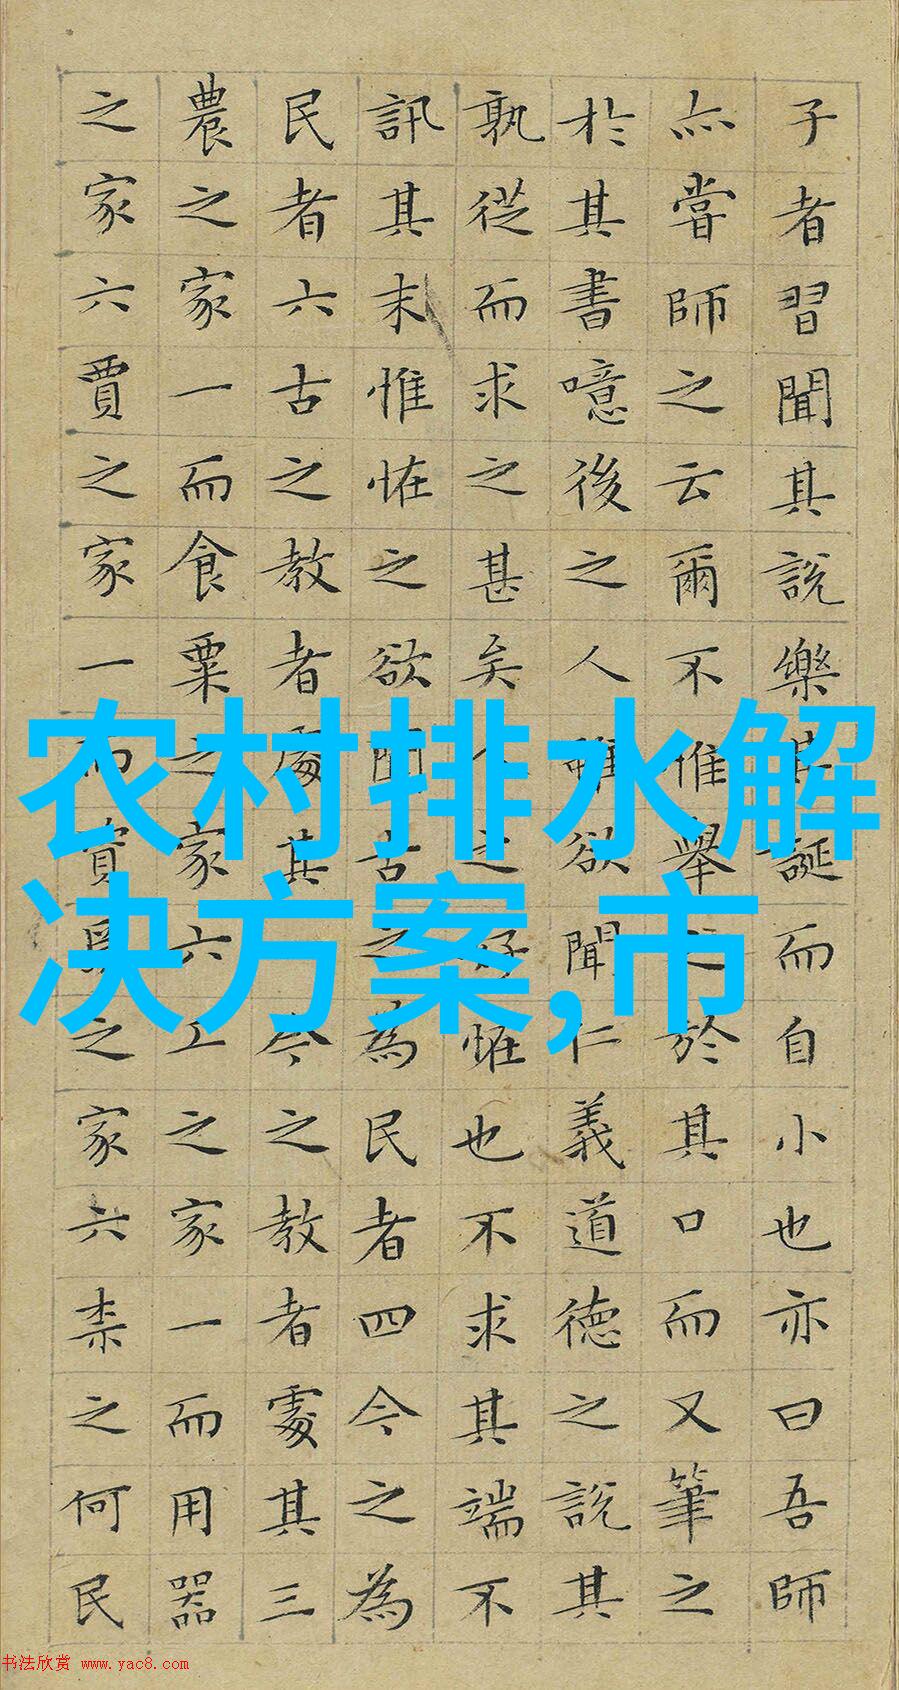 子者習聞其說樂其誕而自小也亦曰吾師
亦嘗師之云爾不惟舉之於其口而又筆之
於其書噫後之人雖欲聞仁義道德之說其
孰從而求之甚矣人之好恠也不求其端不
訊其末惟恠之欲聞古之為民者四今之為
民者六古之教者處其一今之教者處其三
農之家一而食粟之家六工之家一而用器
之家六賈之家一而資焉之家六柰之何民
农村排水解
决方案,市
书法欣赏 www.yac8.com